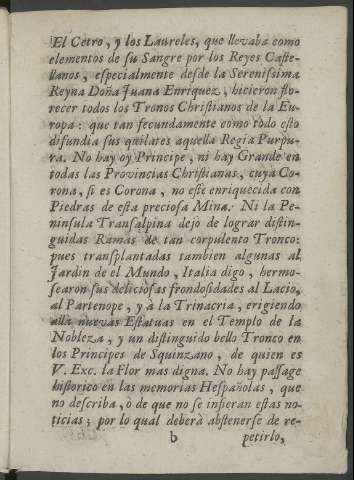 El Cetro, y los Laureles, que llevaba como
elementos de su Sangre por los Reyes Caste-
llanos, especialmente desde la Serenissima
Reyna Doña Juana Enriquez, hicieron flo-
recer todos los Tronos Christianos de la Eu-
ropa: que tan fecundamente como todo esto
difundia sus quilates aquella Regia Purpu-
ra. No hay oy Principe, ni hay Grande en
todas las Provincias Christianas, cuya Co-
rona, si es Corona, no esté enriquecida con
Piedras de esta preciosa Mina. Ni la Pe-
ninsula Transalpina dejo de lograr distin-
guidas Ramas de tan corpulento Tronco:
pues transplantadas tambien algunas al
Jardin de el Mundo, Italia digo, hermo-
searon sus deliciosas frondosidades al Lacio,
al Partenope, y à la Trinacria, erigiendo
allà nuevas Estatuas en el Templo de la
Nobleza, y un distinguido bello Tronco en
los Principes de Squinzano, de quien es
V. Exc. la Flor mas digna. No hay passage
historico en las memorias Hespañolas, que
no describa, ò de que no se infieran estas no-
ticias; por lo qual deberà abstenerse de re-
b petirlo,